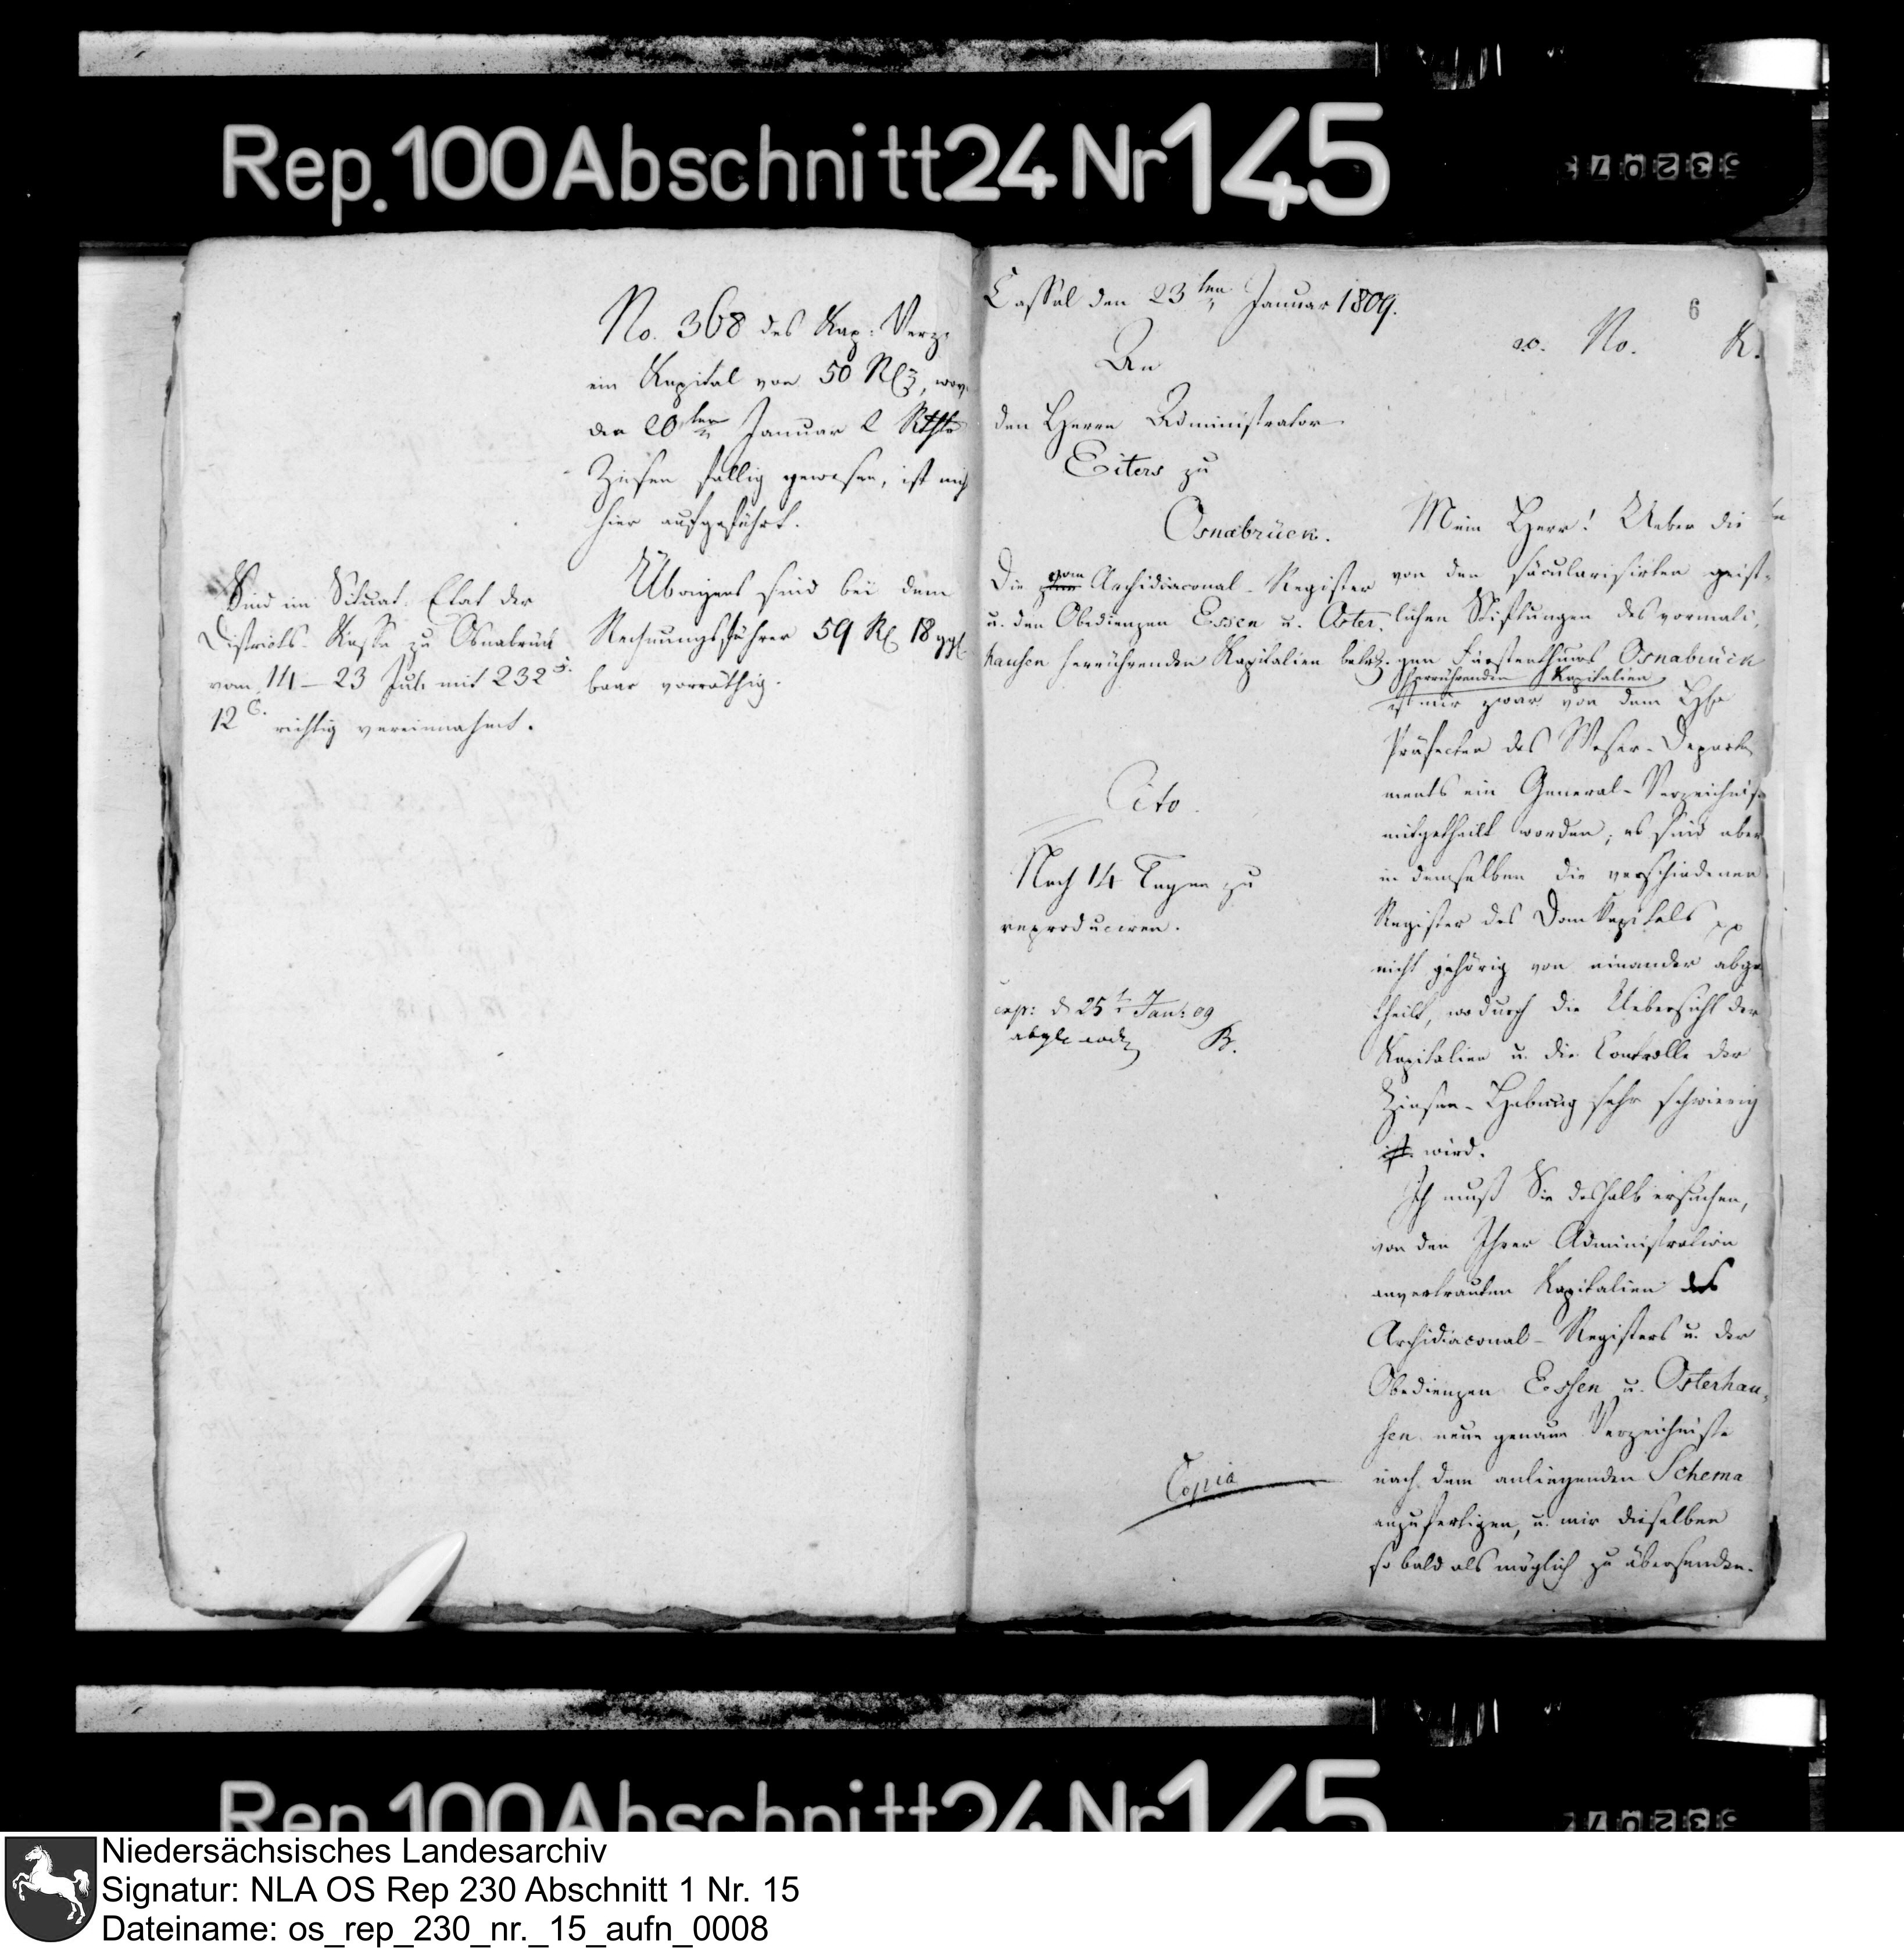 Rep. 100 Abschnitt 24 Nr 145
No. 368 des Kap: Verz.
ein Kapital von 50 Rl
den 20sten Januar 2 Rthlr
Zinsen fällig gewesen, ist nicht
hier aufgeführt.
Übrigens sind bei dem
Rechnungsführer 59 Rl 18 ggl
baar vorräthig.
Sind im Situat. Etat der
Districts-Kasse zu Osnabrück
vom 14–23 Juli mit 232
12 C. richtig vereinnahmt.
Cassel den 23ten Januar 1809.
6
ad. No. K.
An
den Herrn Administrator
Eiters zu
Osnabrück.
Die vom Archidiaconal-Register
u. den Obedienzen Essen u. Oster-
hausen herrührenden Kapitalien betr.
Cito.
Nach 14 Tagen zu
reproduciren.
exp: d 25t Jan: 09
B.
Copia
Mein Herr! Ueber die
von den säcularisirten geist-
lichen Stiftungen des vormali-
gen Fürstenthums Osnabrück
herrührenden Kapitalien
ist mir zwar von dem Hhr
Präfecten des Weser-Departe
ments ein General-Verzeichniß
mitgetheilt worden; es sind aber
in demselben die verschiedenen
Register des DomKapitels pp
nicht gehörig von einander abge
theilt, wodurch die Uebersicht der
Kapitalien u. die Controlle der
Zinsen-Hebung sehr schwierig
ist wird.
Ich muß Sie deshalb ersuchen,
von den Ihrer Administration
anvertrauten Kapitalien des
Archidiaconal-Registers u. der
Obedienzen Essen u. Osterhau-
sen neue genaue Verzeichnisse
nach dem anliegenden Schema
anzufertigen, u. mir dieselben
so bald als möglich zu übersenden.
Rep. 100 Abschnitt 24 Nr 145
Niedersächsisches Landesarchiv
Signatur: NLA OS Rep 230 Abschnitt 1 Nr. 15
Dateiname: os_rep_230_nr._15_aufn_0008